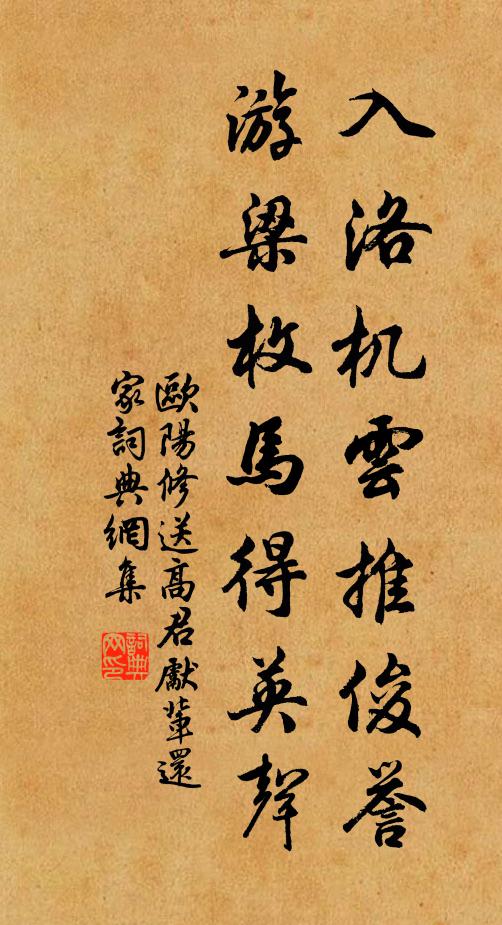 入洛机雲推俊誉
游梁枚馬得英聲
歐陽修送高君獻輩還
家詞典網集
詞典网印